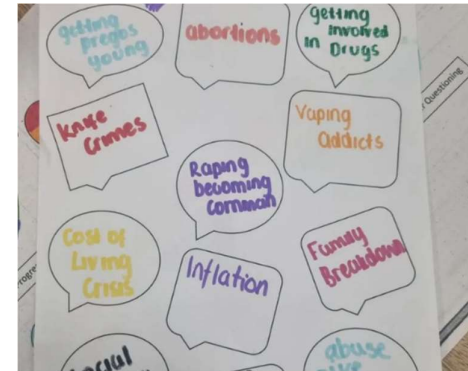 getting
pregos
young
abortions
getting
involved
in Drugs
knife
Crimes
Vaping
addicts
Raping
becoming
common
Cost of
Living
Crisis
Inflation
Family
Breakdown
abuse
Questioning